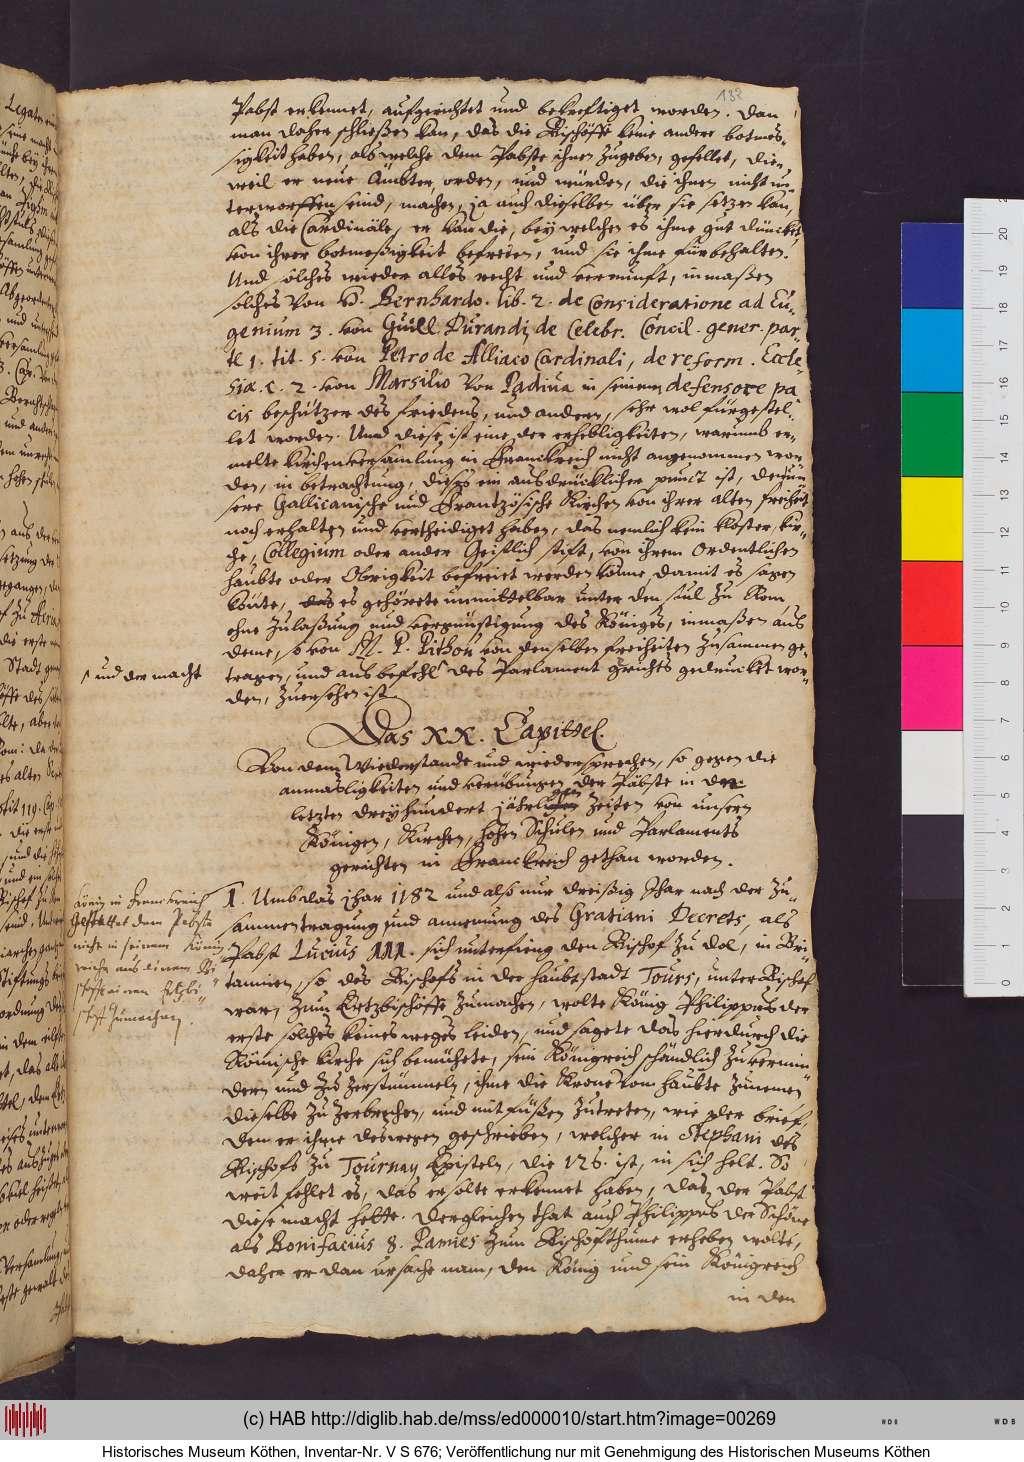 132
Pabst erkennet, aufgerichtet und bekreftiget worden. Dan
man daher schließen kan, das die Bischöffe keine andere botmes-
sigkeit haben, als welche dem Pabste ihnen zugeben, gefellet, die-
weil er neue Ämbter, orden, und würden, die ihnen nicht un-
terworffen seind, machen, ja auch dieselben über sie setzen kan,
als die Cardinäle, er kan die, bey welchen es ihme gut düncket
von ihrer botmeßigkeit befreien, und sie ihme fürbehalten.
Und solches wieder alles recht und vernunft, inmaßen
solches von S. Bernhardo. lib. 2. de Consideratione ad Eu-
genium 3. von Guill. Durandi, de Celebr. Concil. gener. par-
te 1. tit. 5. von Petro de Alliaco Cardinali, de reform. Eccle-
siæ. c. 2. von Marsilio von Padua in seinem defensore pa
cis beschützer des friedens, und andern, sehr wol fürgestel-
let worden. Und diese ist eine der erhebligkeiten, warumb er-
melte kirchenversamlung in Franckreich nicht angenommen wor-
den, in betrachtung, dieses ein ausdrücklicher punct ist, den un-
sere Gallicanische und Frantzösische Kirchen von ihrer alten freiheit
noch erhalten und vertheidiget haben, das nemlich kein kloster, kir-
che, Collegium oder ander Geistlich stift, von ihrem Ordentlichen
haubte oder Obrigkeit befreiet werden könne, damit es sagen
könte, das es gehörete unmittelbar unter den stul zu Rom
ohne zulaßung und vergünstigung des Königes, inmaßen aus
deme, so von M. P. Pithou von denselben freiheiten zusammen ge-
tragen, und aus befehl des Parlament grichts gedrucket wor-
und der macht
den, zuersehen ist.
Das XX. Capittel.
Von dem Wiederstande und wiedersprechen, so gegen die
anmäsligkeiten und verübungen der Päbste in der
letzten dreyhundert jährigen Zeiten von unsern
Königen, Kirchen, hohen Schulen und Parlaments
gerichten in Franckreich gethan worden.
1. Umb das jhar 1182 und also nur dreißig Jhar nach der zu-
sammentragung und annemung des Gratiani Decrets, als
Pabst Lucius III. sich unterfieng den Bischof zu Dol, in Bri-
tannien, so des Bischofs in der haubtstadt Tours, unter Bischof
war, zum Ertzbischoffe zumachen, wolte König Philippus der
erste solches keines weges leiden, und sagete das hierdurch die
Römische kirche sich bemühete, sein Königreich schändlich zu vermin-
dern und zu zerstümmeln, ihme die Krone vom haubte zunemen
dieselbe zu zerbrechen, und mit füßen zutreten, wie der brief,
den er ihme deswegen geschrieben, welcher in Stephani des
Bischofs zu Tournay Episteln, die 126. ist, in sich helt. So
weit fehlet es, das er solte erkennet haben, das der Pabst
diese macht hette. Dergleichen that auch Philippus der Schöne
als Bonifacius 8. Pamies zum Bischofthume erheben wolte,
daher er dan ursache nam, den König und sein Königreich
in den
König in Franckreich
Gestattet dem Pabste
nicht in seinem König
reiche aus einem Bi
schoffe einen Ertzbi-
schoff zumachen.
(c) HAB http://diglib.hab.de/mss/ed000010/start.htm?image=00269
Historisches Museum Köthen, Inventar-Nr. V S 676; Veröffentlichung nur mit Genehmigung des Historischen Museums Köthen